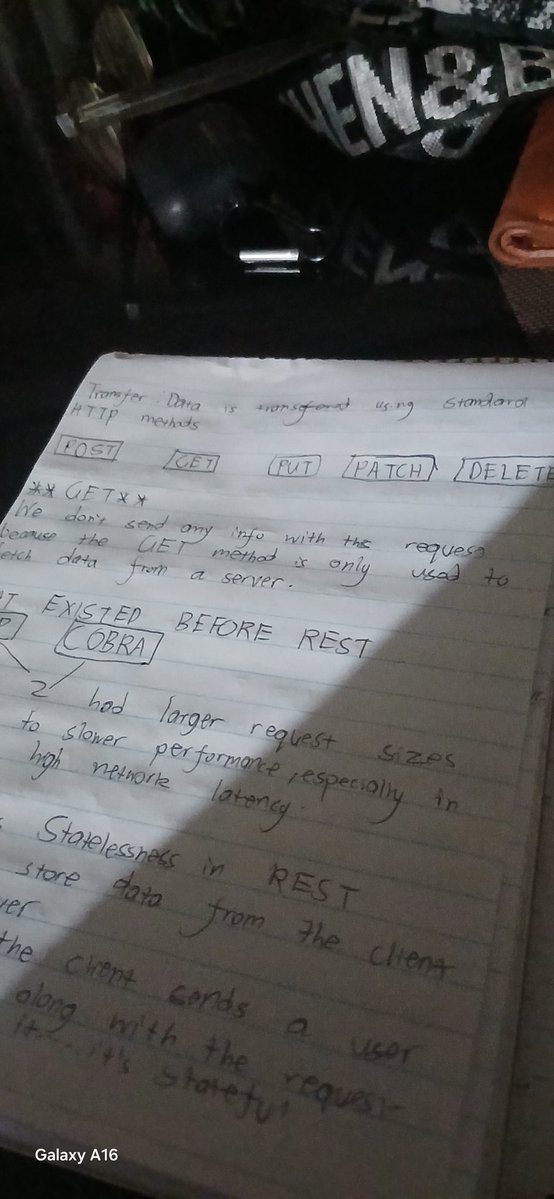 HEN & B
Transfer: Data is transferred using Standard
HTTP methods
POST GET PUT PATCH DELETE
** GET **
We don't send any info with the request
because the GET method is only used to
fetch data from a server.
EXISTED BEFORE REST
COBRA
2 had larger request sizes
to slower performance, especially in
high network latency.
Statelessness in REST
store data from the client
the client sends a user
along with the request
it.... it's stateful
Galaxy A16